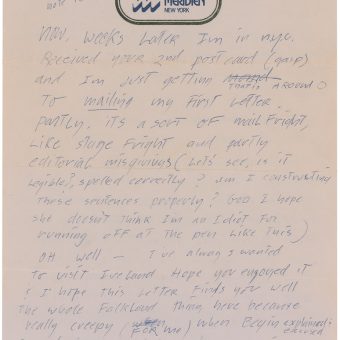 note
MERIDIEN
NEW YORK
now, weeks later I'm in nyc.
Received your 2nd postcard (gasp)
and I'm just getting around
To mailing my first letter.
partly, it's a sort of mail fright,
like stage fright and partly
editorial misgivings (Let's see, is it
legible?, spelled correctly? am I constructing
those sentences properly? God I hope
she doesn't think I'm an Idiot for
running off at the pen like this)
OH well — I've always wanted
to visit Iceland. Hope you enjoyed it
& I hope this letter finds you well
the whole Falkland thing here became
really creepy (for me) when Begin explained: